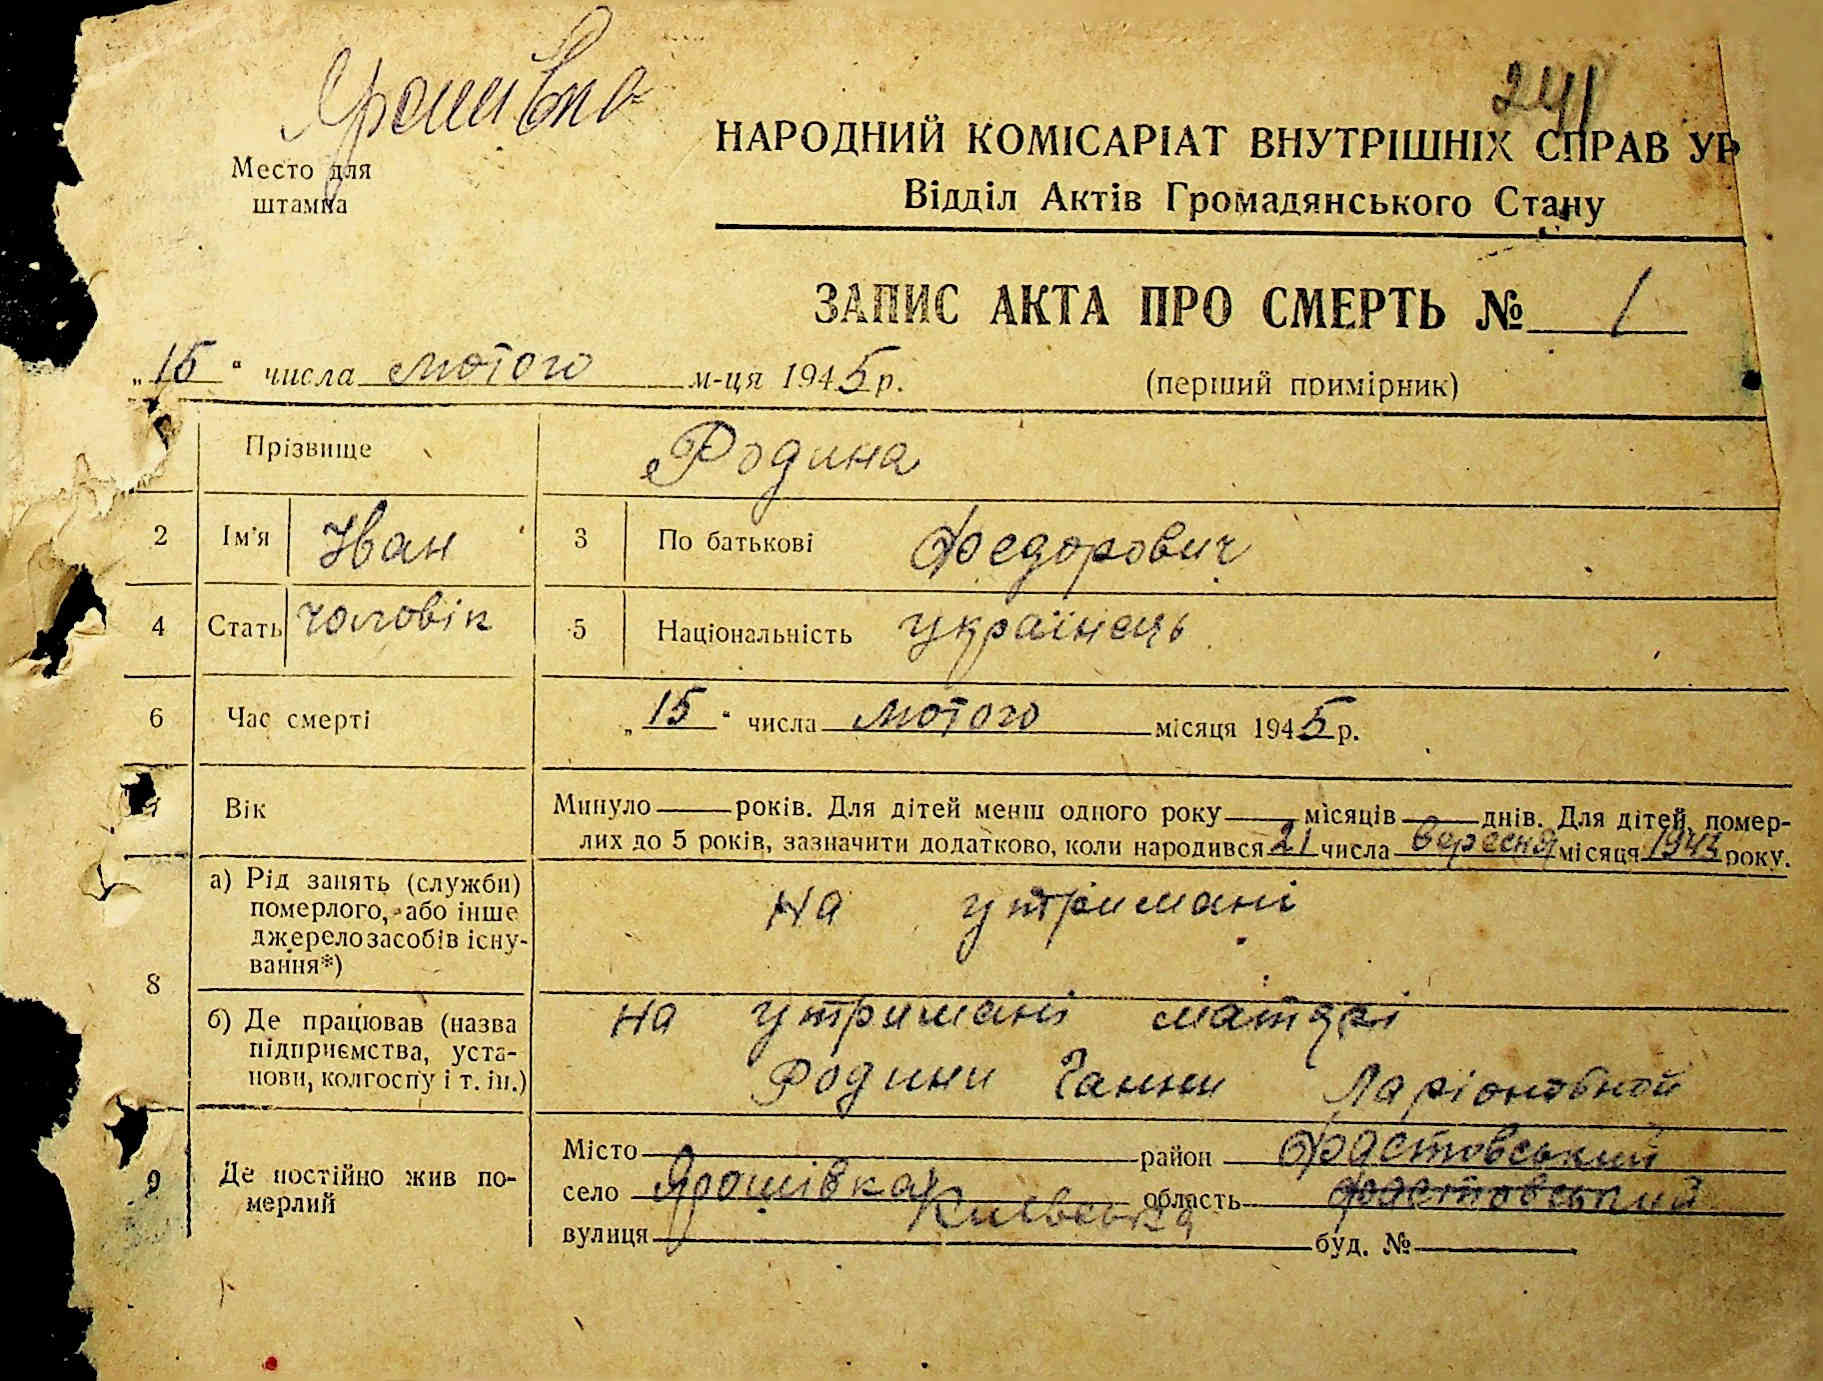 Ярошівка
241
НАРОДНИЙ КОМІСАРІАТ ВНУТРІШНІХ СПРАВ УР
Место для
штампа
Відділ Актів Громадянського Стану
ЗАПИС АКТА ПРО СМЕРТЬ № 1
„15“ числа лютого м-ця 1945 р.
(перший примірник)
Прізвище Родина
2 Ім'я Іван 3 По батькові Федорович
4 Стать чоловік 5 Національність українець
6 Час смерті „15“ числа лютого місяця 1945 р.
Вік Минуло — років. Для дітей менш одного року — місяців — днів. Для дітей, помер-
лих до 5 років, зазначити додатково, коли народився 21 числа вересня місяця 1943 року.
8 а) Рід занять (служби)
померлого, або інше
джерело засобів існу-
вання*)
на утримані
б) Де працював (назва
підприємства, уста-
нови, колгоспу і т. ін.)
на утримані матері
Родини Ганни Ларіоновной
9 Де постійно жив по-
мерлий
Місто район Фастовський
село Ярошівка область Фастовський
Київська
вулиця буд. №